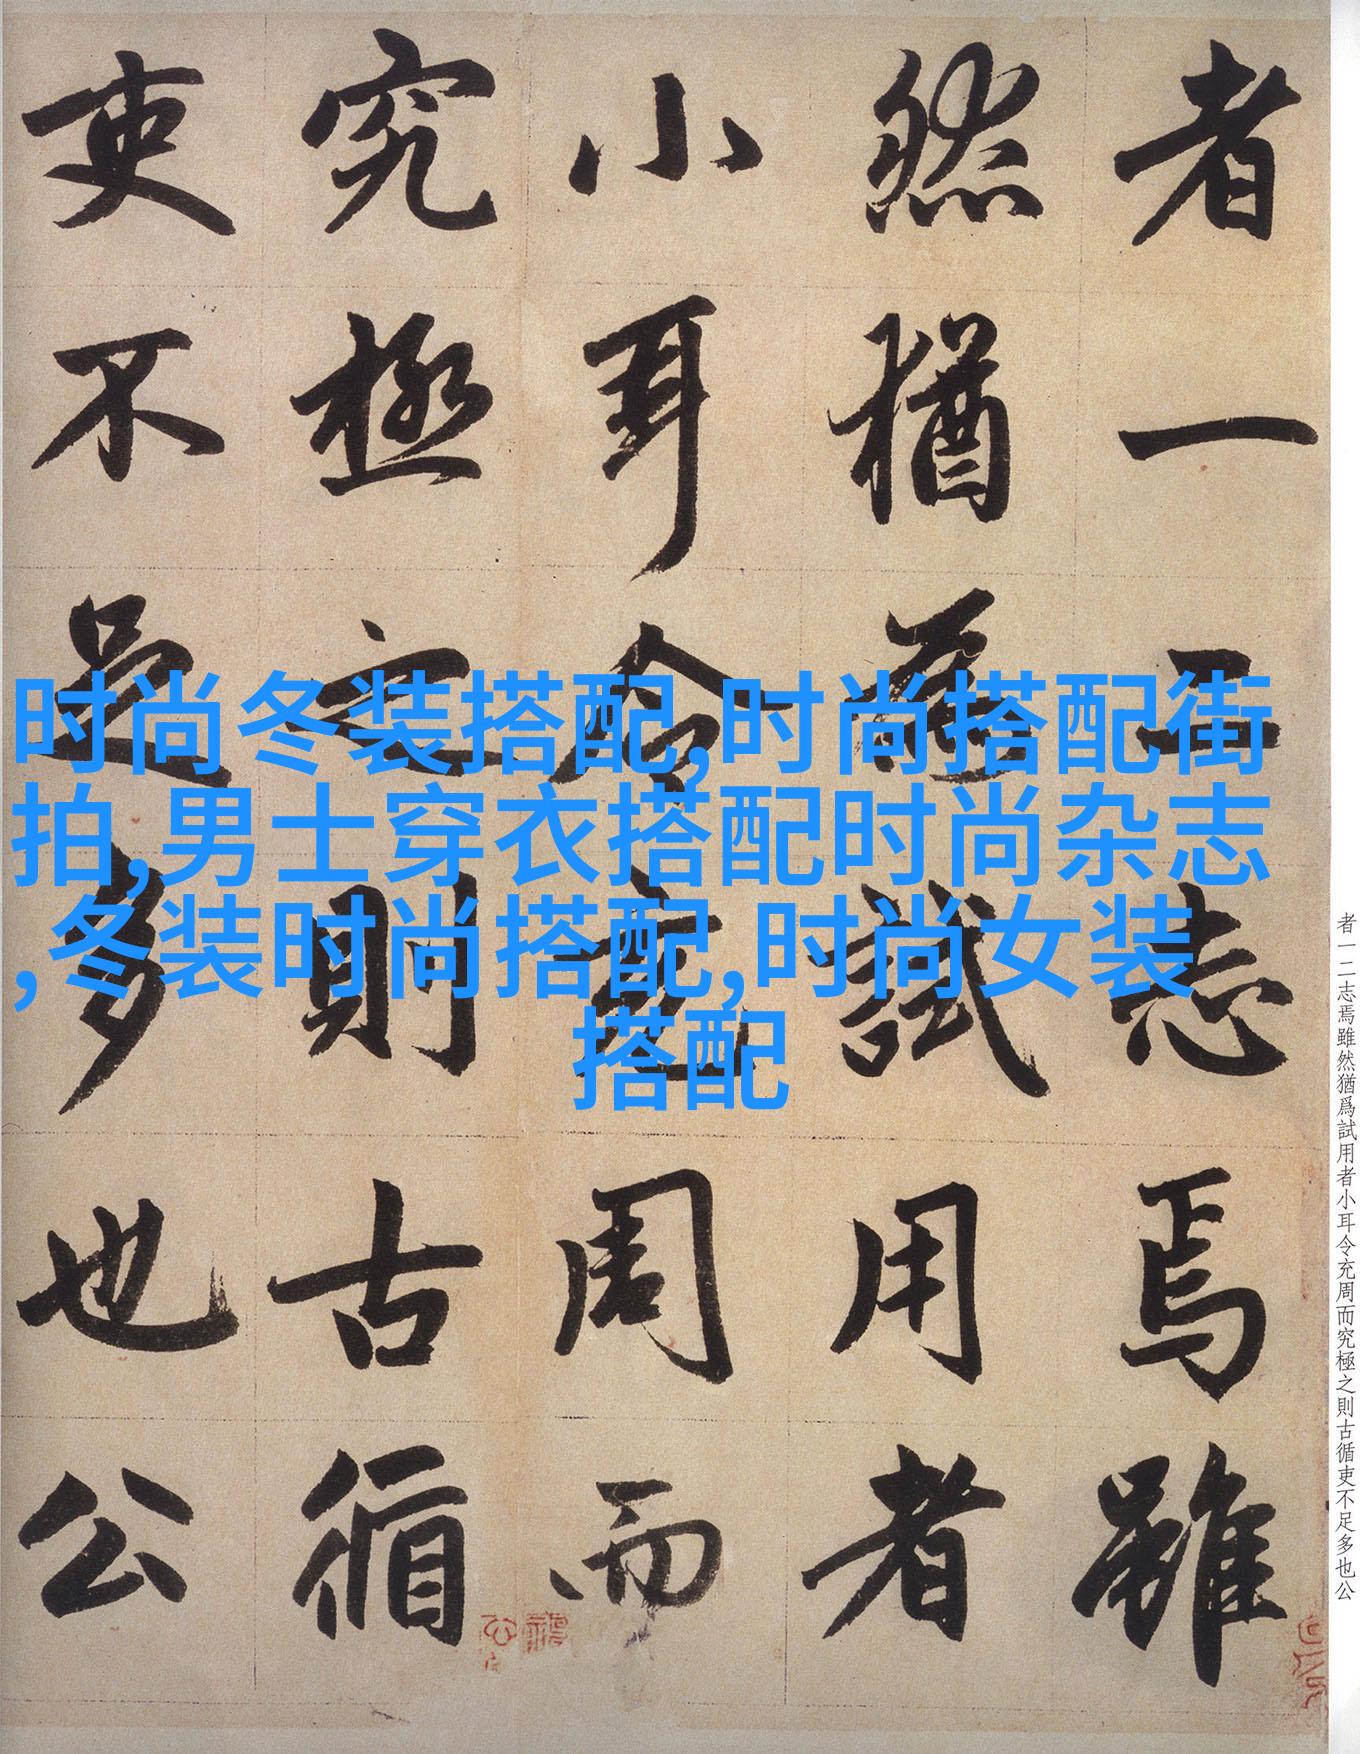 者一二志焉雖
然猶爲試用者
小耳令充周而
究極之則古循
吏不足多也公
时尚冬装搭配,时尚搭配街
拍,男士穿衣搭配时尚杂志
,冬装时尚搭配,时尚女装
搭配
者一二志焉雖然猶爲試用者小耳令充周而究極之則古循吏不足多也公